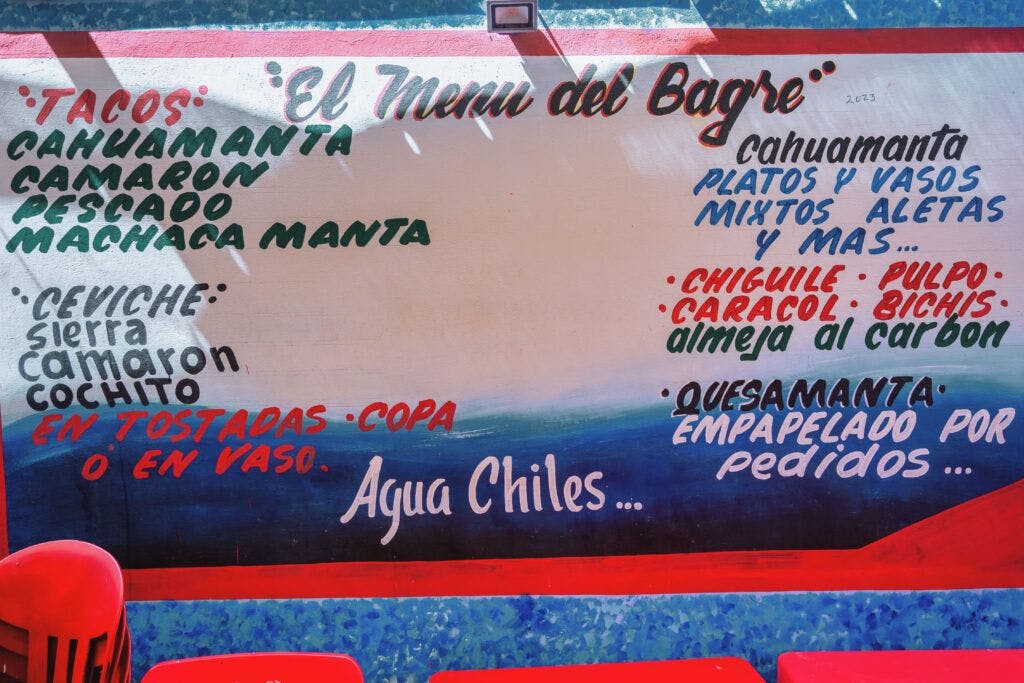 "El Menu del Bagre"
2023
"TACOS"
CAHUAMANTA
CAMARON
PESCADO
MACHACA MANTA
"CEVICHE"
sierra
camaron
COCHITO
EN TOSTADAS · COPA
O EN VASO.
cahuamanta
PLATOS Y VASOS
MIXTOS ALETAS
Y MAS...
· CHIGUILE · PULPO ·
· CARACOL · BICHIS ·
almeja al carbon
· QUESAMANTA ·
EMPAPELADO POR
pedidos...
Agua Chiles...